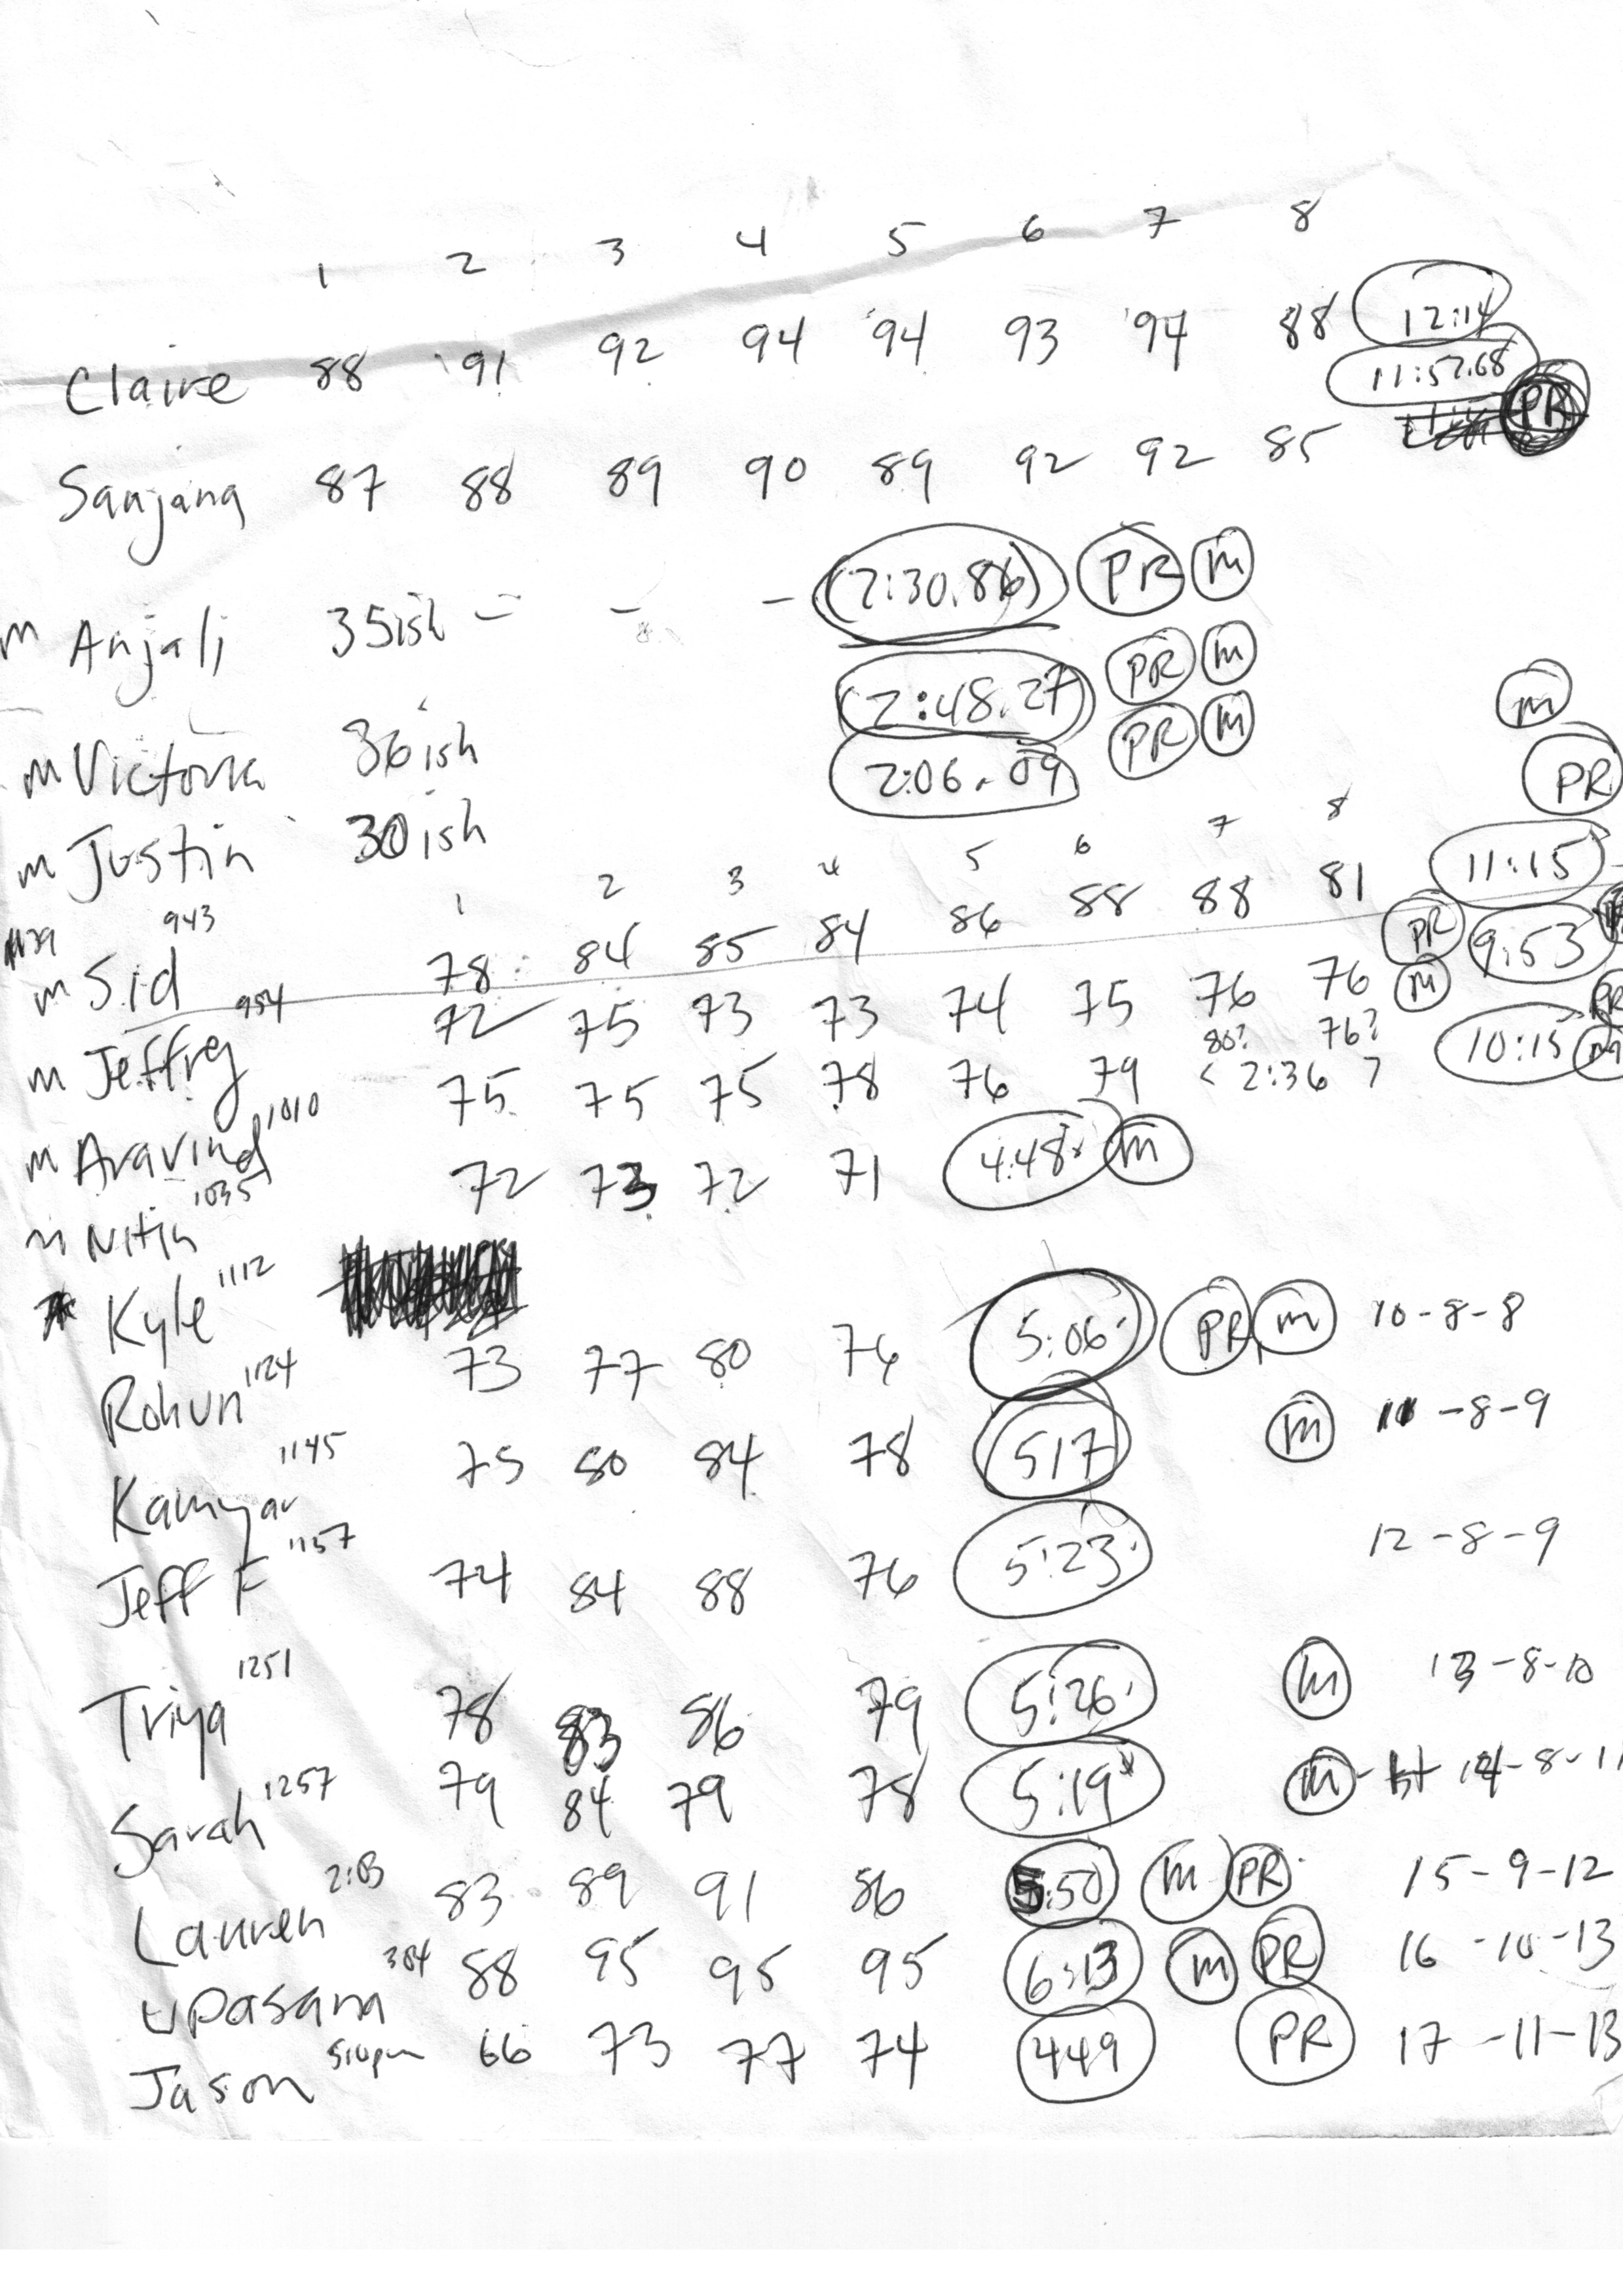 1 2 3 4 5 6 7 8
Claire 88 91 92 94 94 93 94 88 12:14
11:52.68 PR
Sanjana 87 88 89 90 89 92 92 85
m Anjali 35ish - - - (2:30.86) PR m
m Victoria 36ish (2:48.27) PR m
m Justin 30ish 2:06.09 PR m
m
PR
1 2 3 4 5 6 7 8
m Sid 943 78 84 85 84 86 88 88 81 11:15
m Jeffrey 954 72 75 73 73 74 75 76 76 PR m 9:53
80? 76? PR
m Aravind 1010 75 75 75 78 76 79 < 2:36 > 10:15 m
m Nitin 1035 72 73 72 71 4:48 m
Kyle 1112
Rohun 1124 73 77 80 76 5:06 PR m 10-8-8
Kamyar 1145 75 80 84 78 517 m 11-8-9
Jeff F 1157 74 84 88 76 5:23 12-8-9
Triya 1251 78 83 86 79 5:26 m 13-8-10
Sarah 1257 79 84 79 78 5:19 m 14-8-11
Lauren 2:03 83 89 91 86 5:50 m PR 15-9-12
Upasana 304 88 95 95 95 6:13 m PR 16-10-13
Jason 510pm 66 73 77 74 449 PR 17-11-13